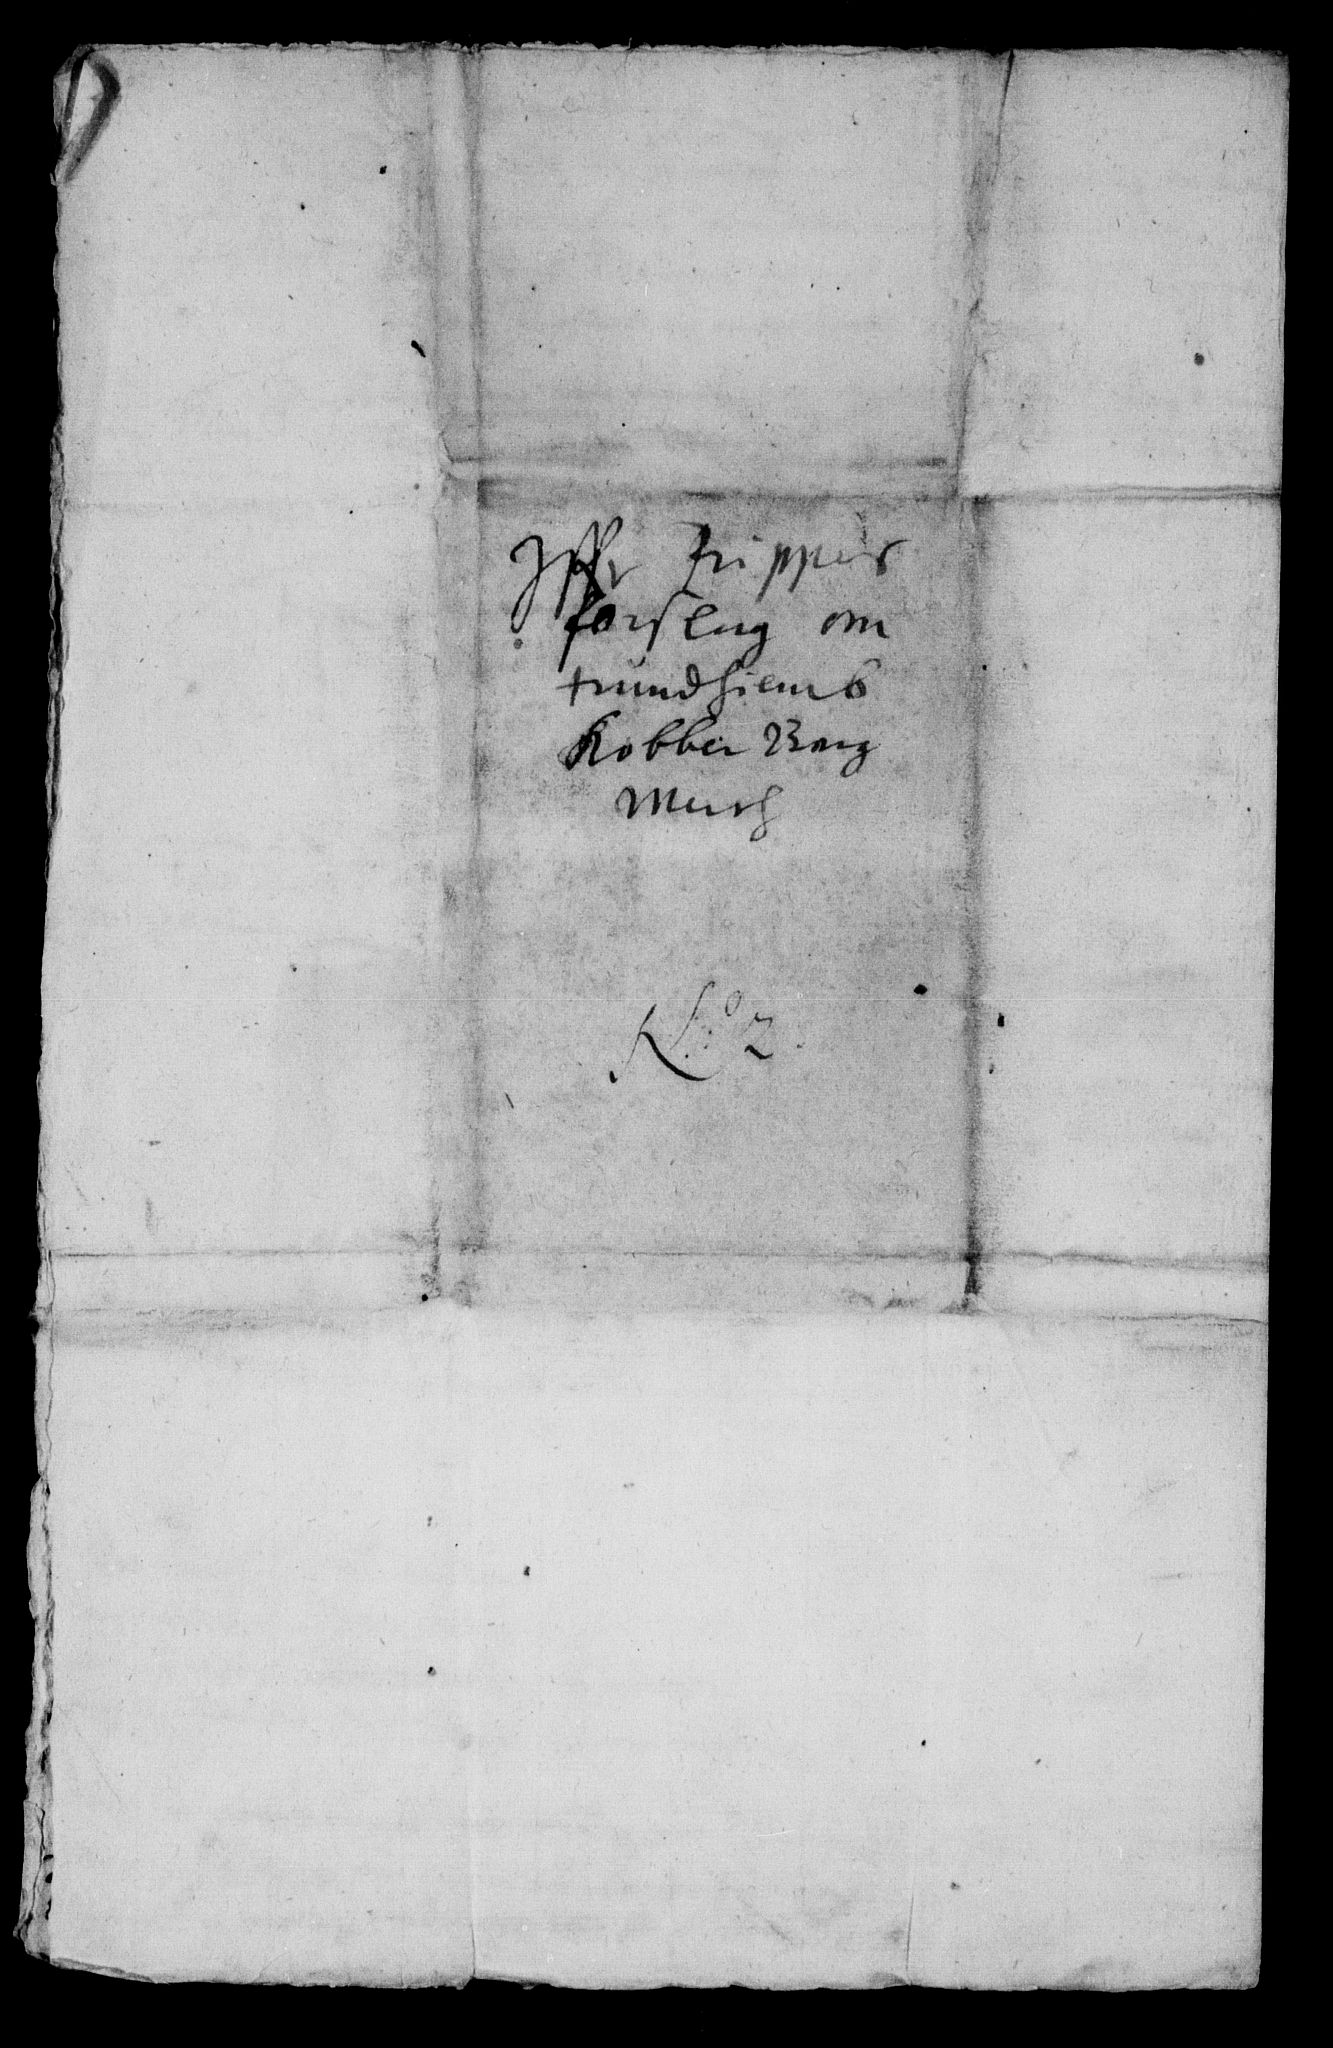 Trippes
forslag om
trundhiembs
Kobber Berg
Werch